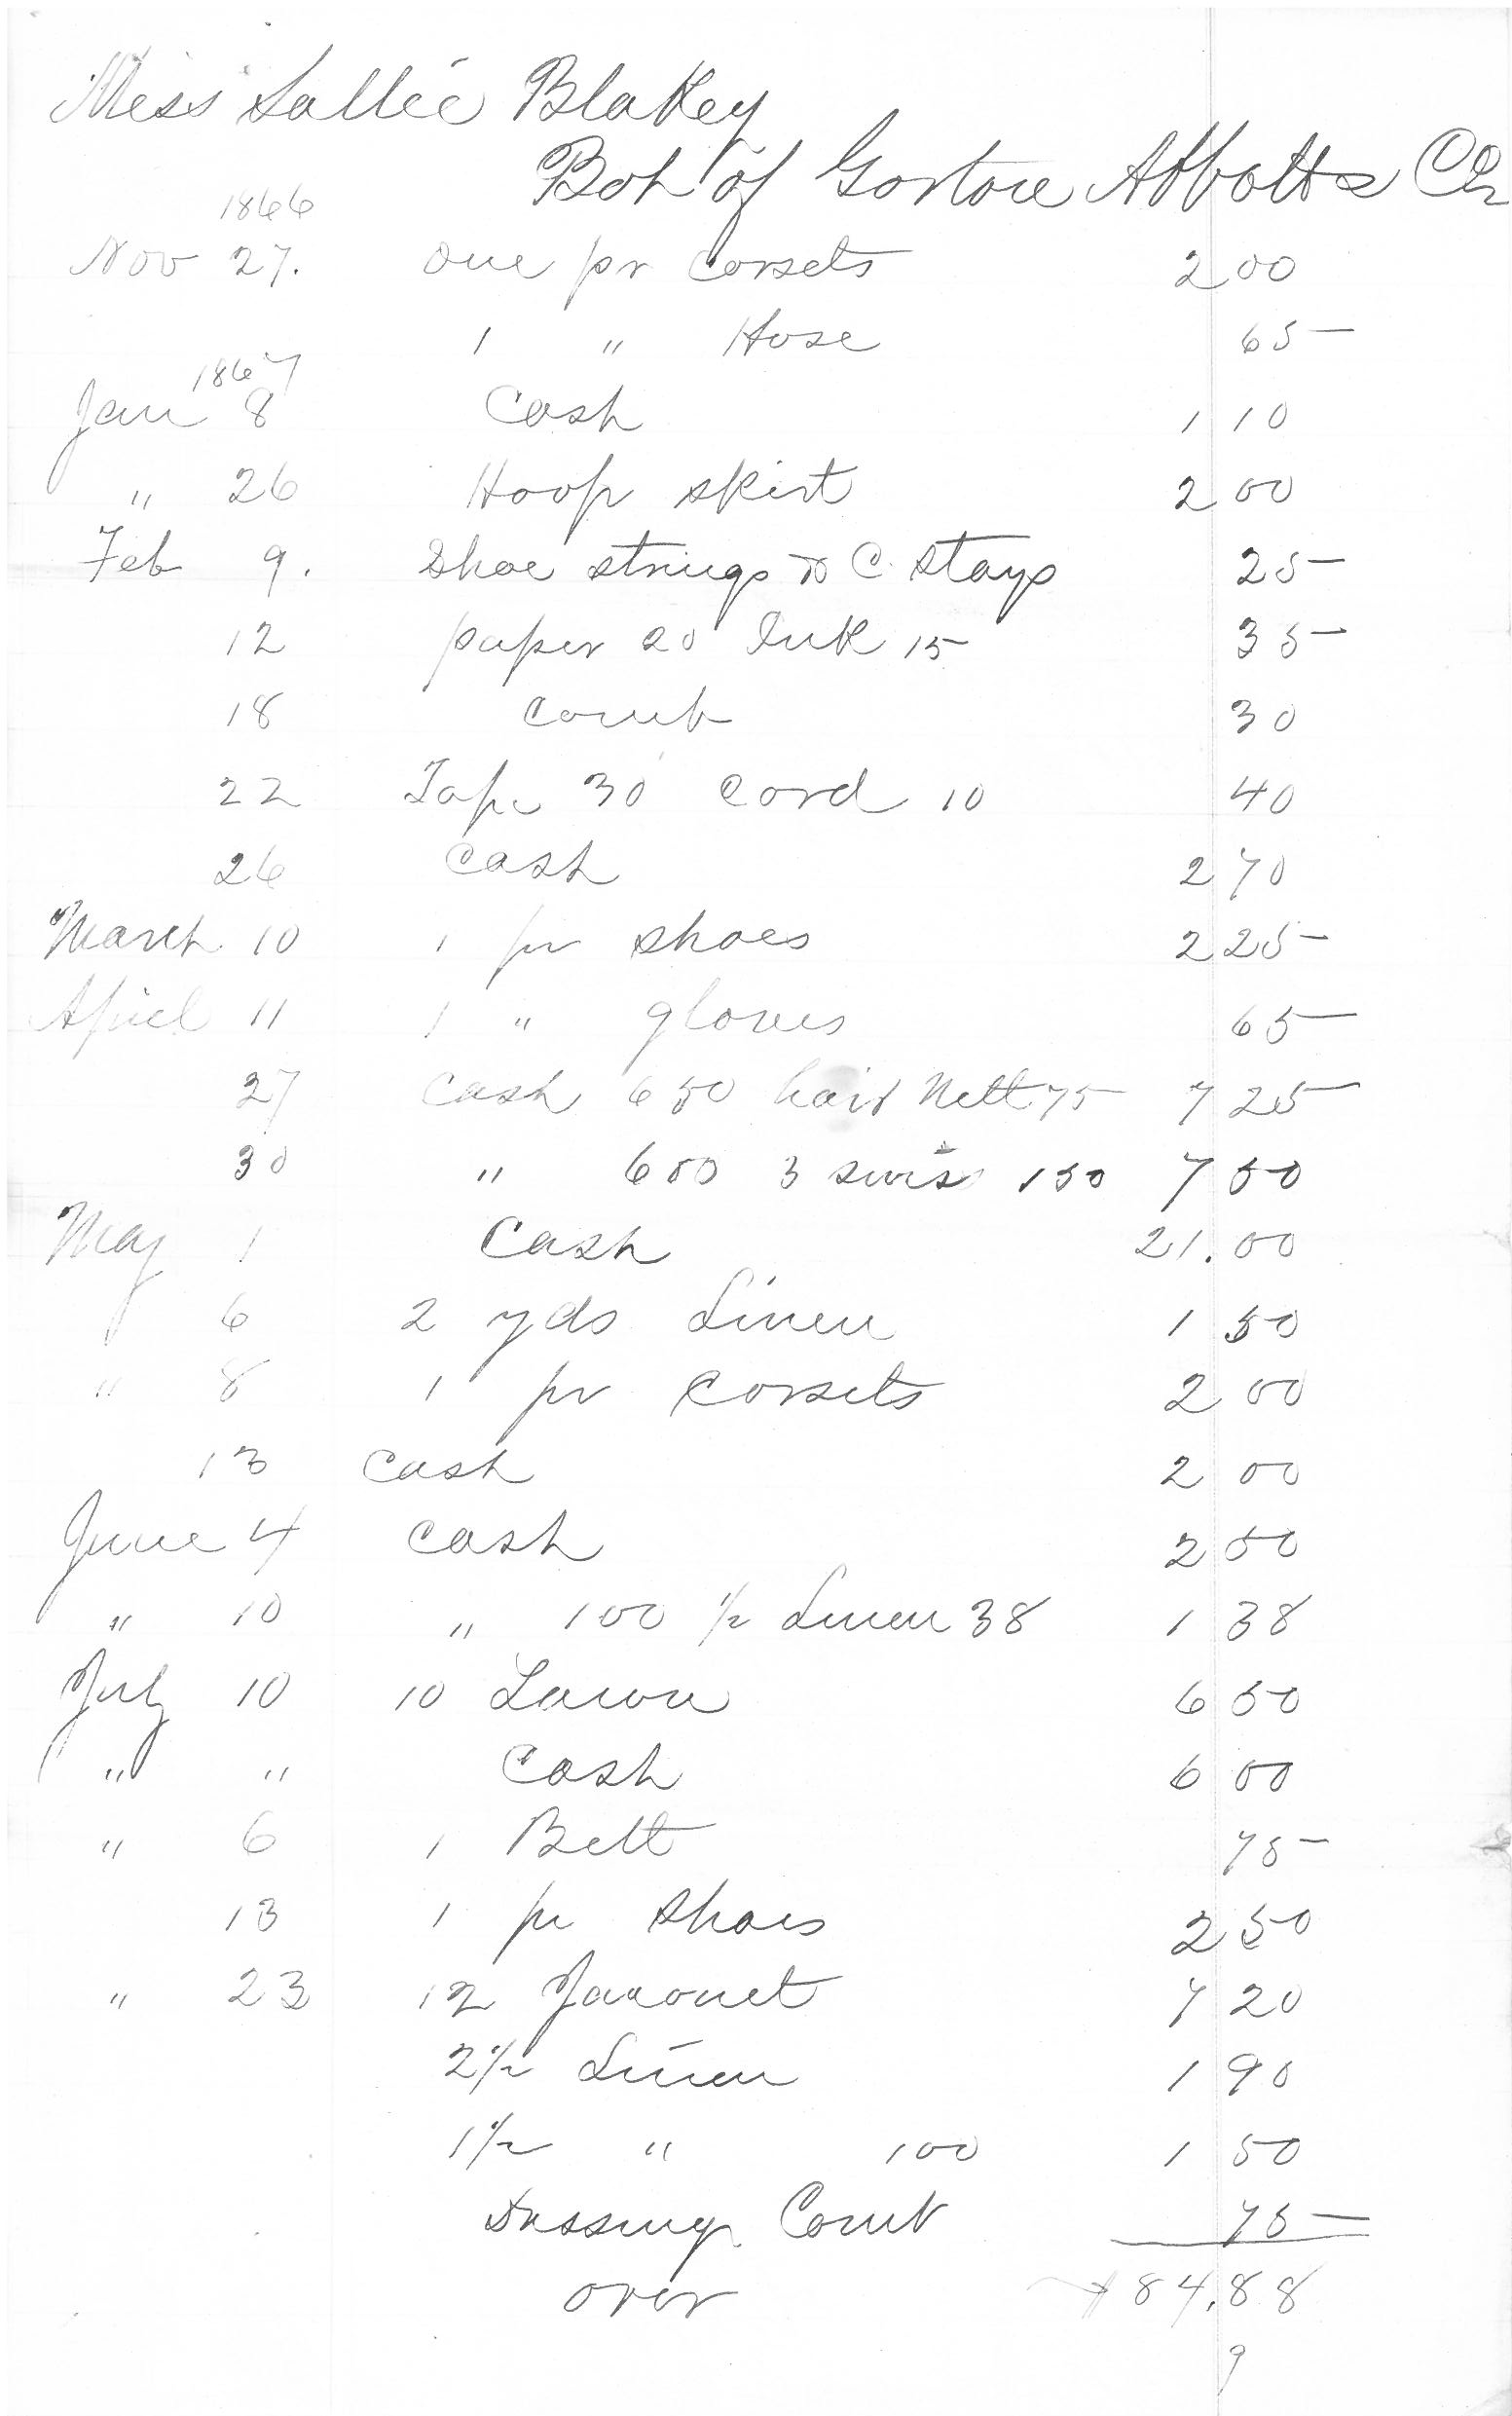 Miss Sallie Blakey
Bot of Gorton Abbott & Co
1866
Nov 27. One pr Corsets 2 00
1 " Hose 65
1867
Jan 8 Cash 1 10
" 26 Hoop skirt 2 00
Feb 9. Shoe strings & C. stays 25
12 paper 20 Ink 15 35
18 Comb 30
22 Tape 30 Cord 10 40
26 Cash 2 70
March 10 1 pr shoes 2 25
April 11 1 " gloves 65
27 Cash 650 hair Nett 75 7 25
30 " 600 3 swiss 150 7 50
May 1 Cash 21.00
6 2 yds Linen 1 50
" 8 1 pr Corsets 2 00
13 Cash 2 00
June 4 Cash 2 00
" 10 " 100 1/2 Linen 38 1 38
July 10 10 Lawn 6 50
" " Cash 6 00
" 6 1 Belt 75
" 13 1 pr Shoes 2 50
" 23 12 Jaconet 7 20
2 1/2 Linen 1 90
1 1/2 " 100 1 50
Dressing Comb 75
over 84.88
9